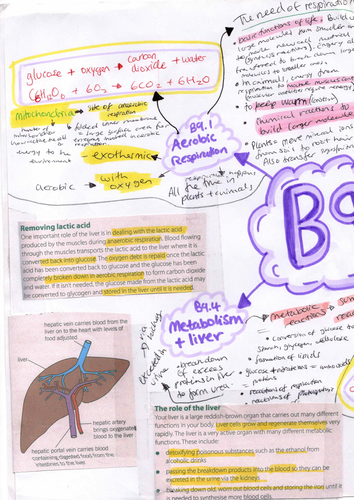 The need of respiration
basic functions of life. Build
large molecules from smaller
make new cell material
transferred to break down large
molecules to smaller
In animals, energy from
respiration to make muscles contract
to keep warm
chemical reactions to
build larger molecules
Plants move mineral ions
from soil to root hair
Also transfer
glucose + oxygen → carbon dioxide + water
C6H12O6 + 6O2 → 6CO2 + 6H2O
mitochondria → site of anaerobic
respiration
folded inner membrane
= large surface area for
enzymes involved in aerobic
respiration
energy to the
environment
exothermic
B9.1
Aerobic
Respiration
aerobic → with
oxygen
respiration happens
All the time in
plants + animals
B9
Removing lactic acid
One important role of the liver is in dealing with the lactic acid
produced by the muscles during anaerobic respiration. Blood flowing
through the muscles transports the lactic acid to the liver where it is
converted back into glucose. The oxygen debt is repaid once the lactic
acid has been converted back to glucose and the glucose has been
completely broken down in aerobic respiration to form carbon dioxide
and water. If it isn't needed, the glucose made from the lactic acid may
be converted to glycogen and stored in the liver until it is needed.
B9.4
Metabolism
+ liver
metabolic
reactions
= conversion of glucose to
starch, glycogen, cellulose
= formation of lipids
= glucose + nitrates = amino acids
proteins
= reactions of respiration
= reactions of photosynthesis
= breakdown
of excess
proteins in liver
to form urea
excreted in
hepatic vein carries blood from the
liver on to the heart with levels of
food adjusted.
liver
hepatic artery
brings oxygenated
blood to the liver
hepatic portal vein carries blood
containing digested food from the
intestines to the liver
The role of the liver
Your liver is a large reddish-brown organ that carries out many different
functions in your body. Liver cells grow and regenerate themselves very
rapidly. The liver is a very active organ with many different metabolic
functions. These include:
• detoxifying poisonous substances such as the ethanol from
alcoholic drinks
• passing the breakdown products into the blood so they can be
excreted in the urine via the kidneys
• breaking down old, worn out blood cells and storing the iron until it
is needed to synthesise more blood cells.